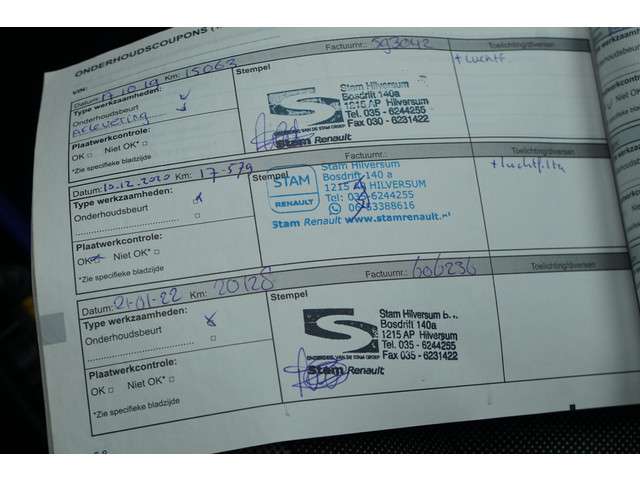 ONDERHOUDSCOUPONS
VIN:
Datum: 17.10.19 Km: 15063 Factuurnr.: 593042 Toelichting/diversen
Type werkzaamheden: Stempel + Lucht f.
Onderhoudsbeurt
Aflevering
Plaatwerkcontrole:
OK □ Niet OK* □
*Zie specifieke bladzijde
Stam Hilversum
Bosdrift 140a
1215 AP Hilversum
Tel. 035 - 6244255
Fax 030 - 6231422
ONDERDEEL VAN DE STAM GROEP
Stam Renault
Datum: 10.12.2020 Km: 17-579 Factuurnr.: Toelichting/diversen
Type werkzaamheden: Stempel + luchtfilter
Onderhoudsbeurt
Plaatwerkcontrole:
OK Niet OK* □
*Zie specifieke bladzijde
STAM
RENAULT
Stam Hilversum
Bosdrift 140 a
1215 HILVERSUM
Tel: 035-6244255
06-53388616
Stam Renault www.stamrenault.nl
Datum: 21-01-22 Km: 20128 Factuurnr.: 606236 Toelichting/diversen
Type werkzaamheden: Stempel
Onderhoudsbeurt
Plaatwerkcontrole:
OK □ Niet OK* □
*Zie specifieke bladzijde
Stam Hilversum b.v.
Bosdrift 140a
1215 AP Hilversum
Tel. 035 - 6244255
Fax 035 - 6231422
ONDERDEEL VAN DE STAM GROEP
Stam Renault